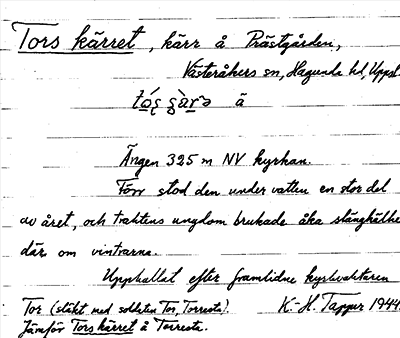 Tors kärret, kärr å Prästgården,
Västeråkers sn, Hagunda hd, Uppsl.
ä
Ängen 325 m NV kyrkan.
Förr stod den under vatten en stor del
av året, och traktens ungdom brukade åka slängkälke
där om vintrarna.
Uppkallat efter framlidne kyrkvaktaren
Tor (släkt med soldaten Tor, Torresta). K.-H. Tagger 1944.
Jämför Tors kärret å Torresta.